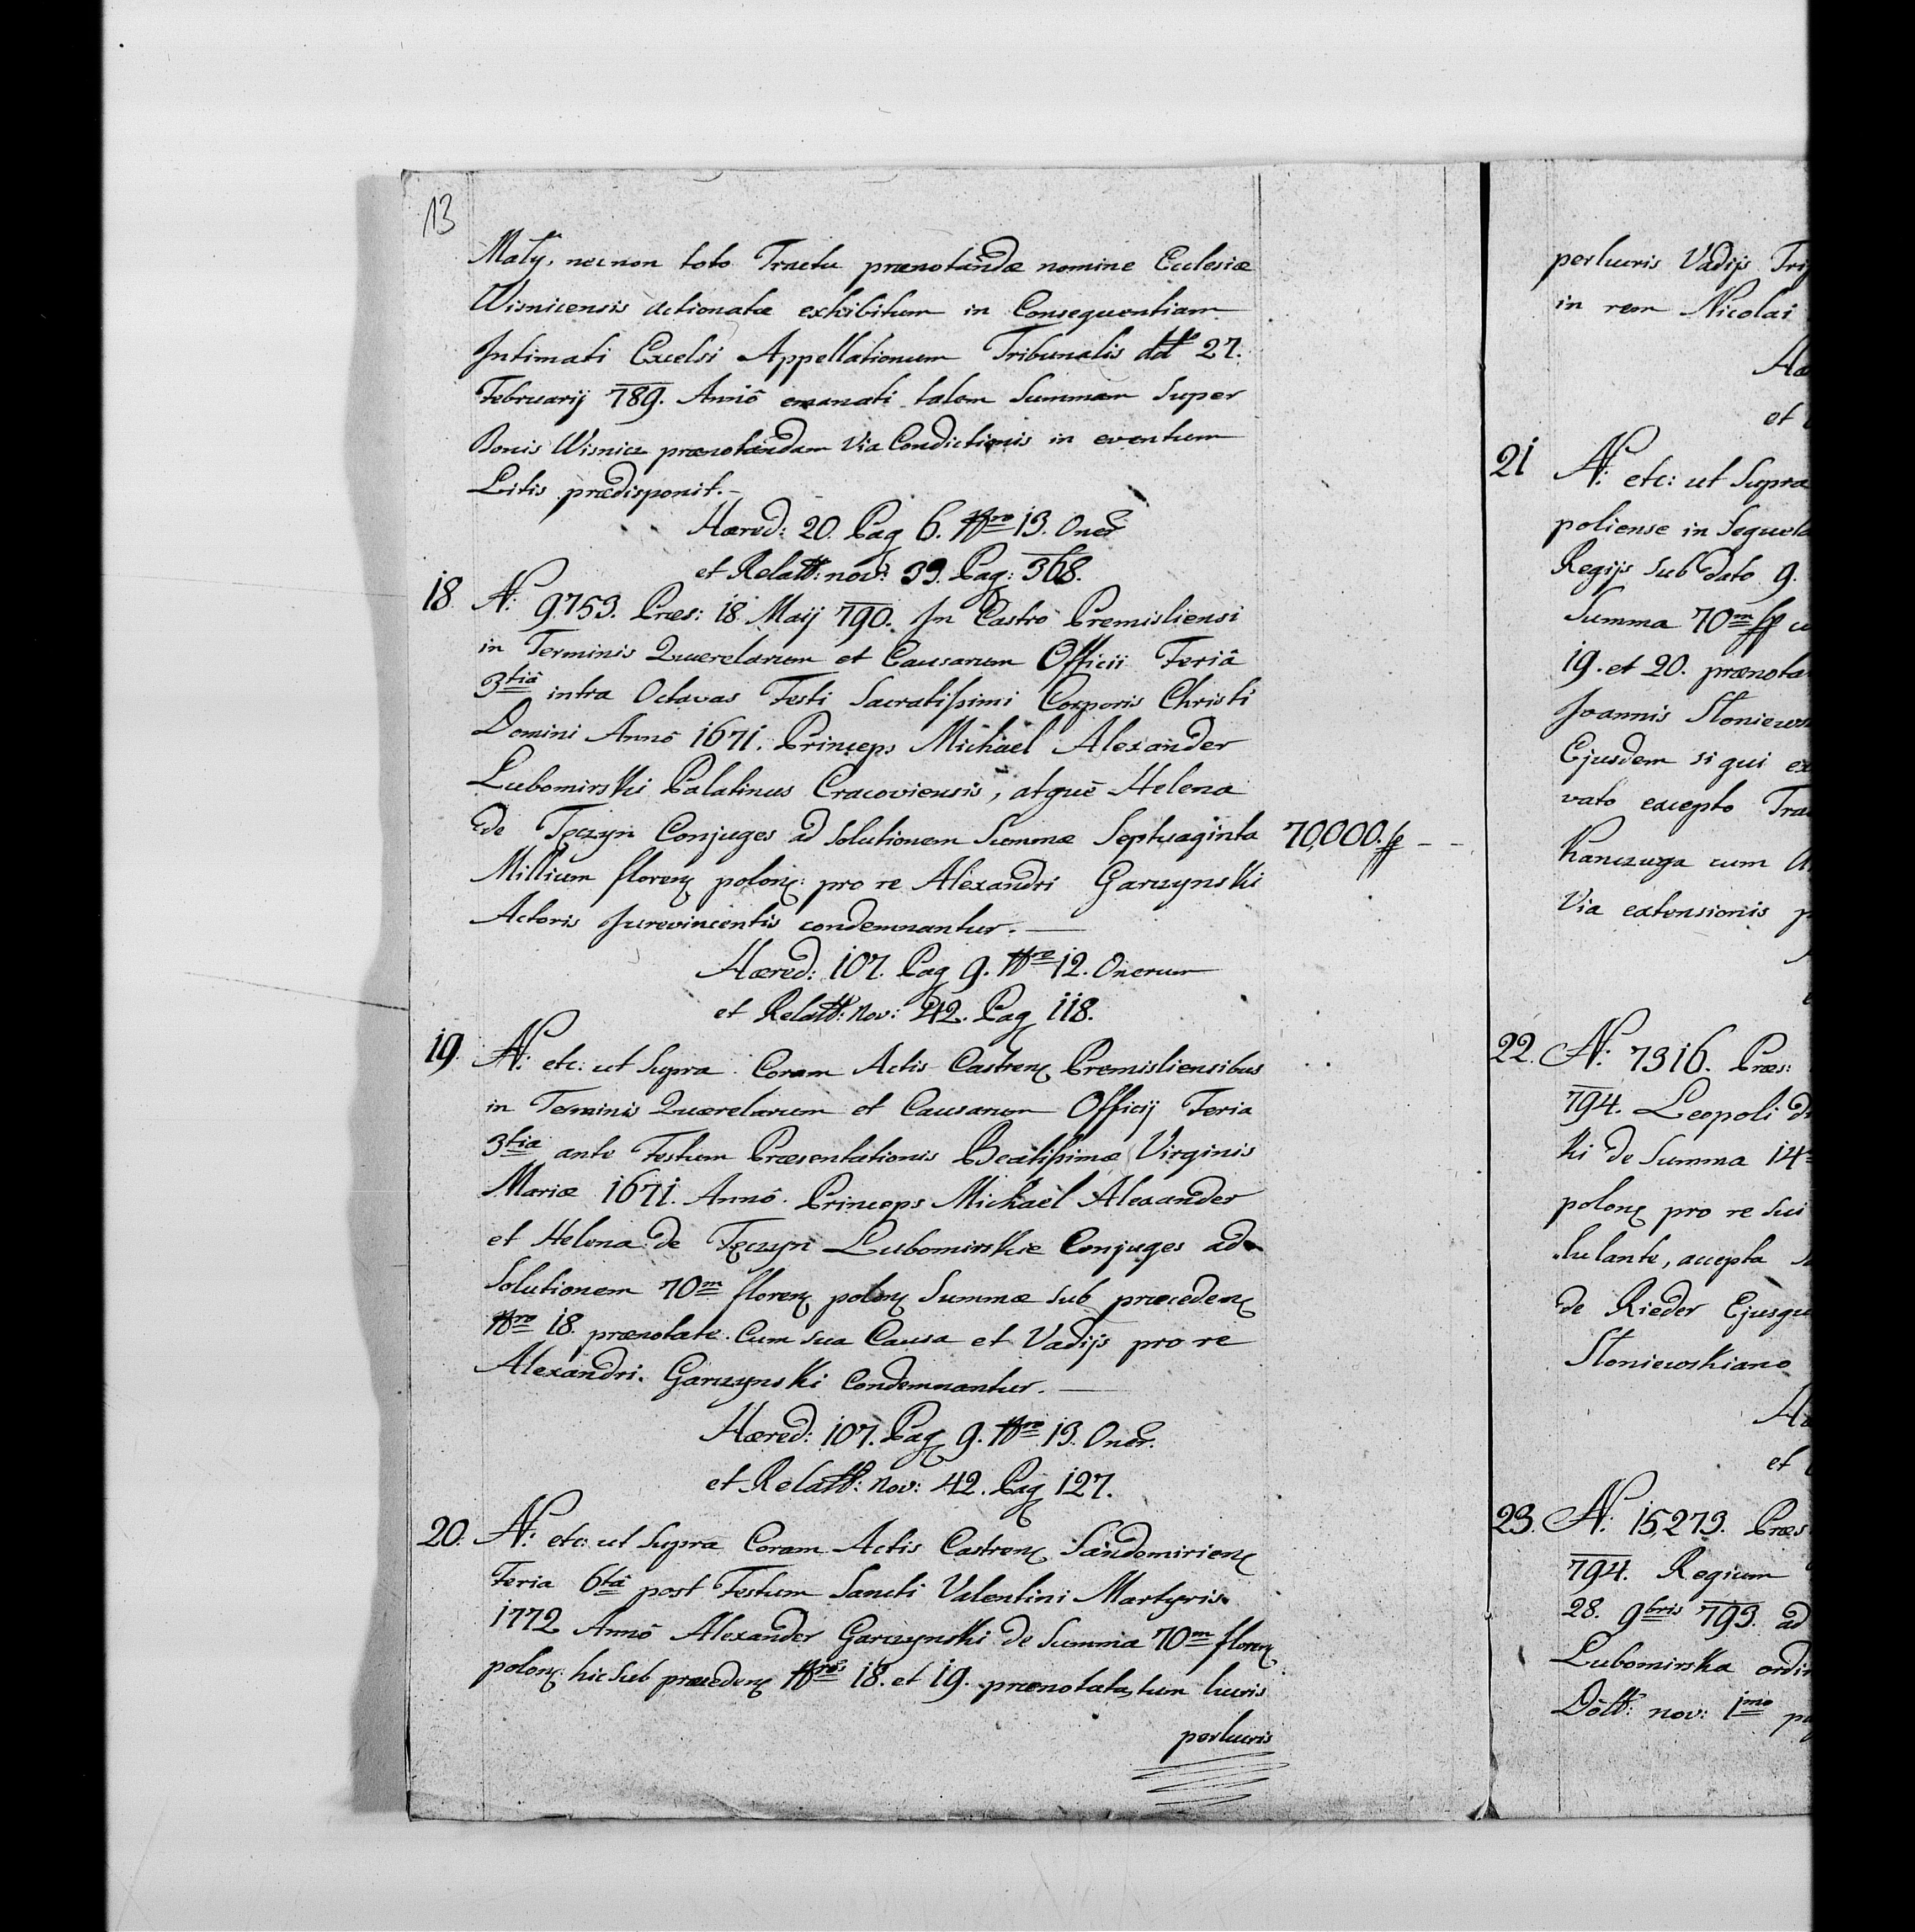 13
Maty, necnon toto Tractu prænotandæ nomine Ecclesiæ
Wisnicensis actionatæ exhibitum in Consequentiam
Intimati Excelsi Appellationum Tribunalis ddto 27.
Februarij 789. Annô emanati talem Summam Super
Bonis Wisnicz prænotandam Via Condictionis in eventum
Litis prædisponit.-
Hæred: 20. Pag 6. Nro 13. Oner
et Relatt: nov: 39. Pag: 368.
18. N: 9753. Præs: 18. Maij 790. In Castro Premisliensi
in Terminis Querelarum et Causarum Officii Feriâ
3tiâ intra Octavas Festi Sacratissimi Corporis Christi
Domini Annô 1671. Princeps Michael Alexander
Lubomirski Palatinus Cracoviensis, atque Helena
de Tęczyn Conjuges ad Solutionem Summæ Septuaginta 70,000. fp --
Millium floren polon: pro re Alexandri Garczynski
Actoris Jurevincentis condemnantur. —
Hæred: 107. Pag 9. Nro 12. Onerum
et Relatt: Nov: 42. Pag 118.
19. N: etc: ut Supra. Coram Actis Castren Premisliensibus
in Terminis Querelarum et Causarum Officij Feria
3tia ante Festum Præsentationis Beatissimæ Virginis
Mariæ 1671. Annô. Princeps Michael Alexander
et Helena de Tęczyn Lubomirskie Conjuges ad
Solutionem 70m floren polon Summæ sub præceden
Nro 18. prænotatæ. Cum sua Causa et Vadijs pro re
Alexandri Garczynski Condemnantur. —
Hæred: 107. Pag 9. Nro 13. Oner.
et Relatt: Nov: 42. Pag 127.
20. N: etc: ut Supra Coram Actis Castren Sandomirien
Feria 6tâ post Festum Sancti Valentini Martyris
1772 Annô Alexander Garczynski de Summa 70m floren
polon: hic Sub præceden Nris 18. et 19. prænotata, tum lucris
perlucris
perlucris Vadijs
in rem Nicolai
et
21 N: etc: ut Supra
poliense in
Regijs sub dato 9.
Summa 70m fp
19. et 20.
Joannis
Ejusdem si qui
vato excepto
Kanczuga cum
Via extensionis
22. N: 7316. Præs:
794. Leopoli
ki de Summa
polon pro re sui
lulante, accepta
de Rieder
Stoniewskiano
et
23. N: 15273.
794. Regium
28. 9bris 793. ad
Lubomirska
Dõtt: nov: 1mo